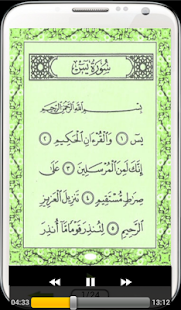 سُورَةُ يسٓ
بِسْمِ اللَّهِ الرَّحْمَٰنِ الرَّحِيمِ
يسٓ ١ وَالْقُرْءَانِ الْحَكِيمِ ٢
إِنَّكَ لَمِنَ الْمُرْسَلِينَ ٣ عَلَىٰ
صِرَٰطٍ مُّسْتَقِيمٍ ٤ تَنزِيلَ الْعَزِيزِ
الرَّحِيمِ ٥ لِتُنذِرَ قَوْمًا مَّا أُنذِرَ
1/24
04:33 13:12